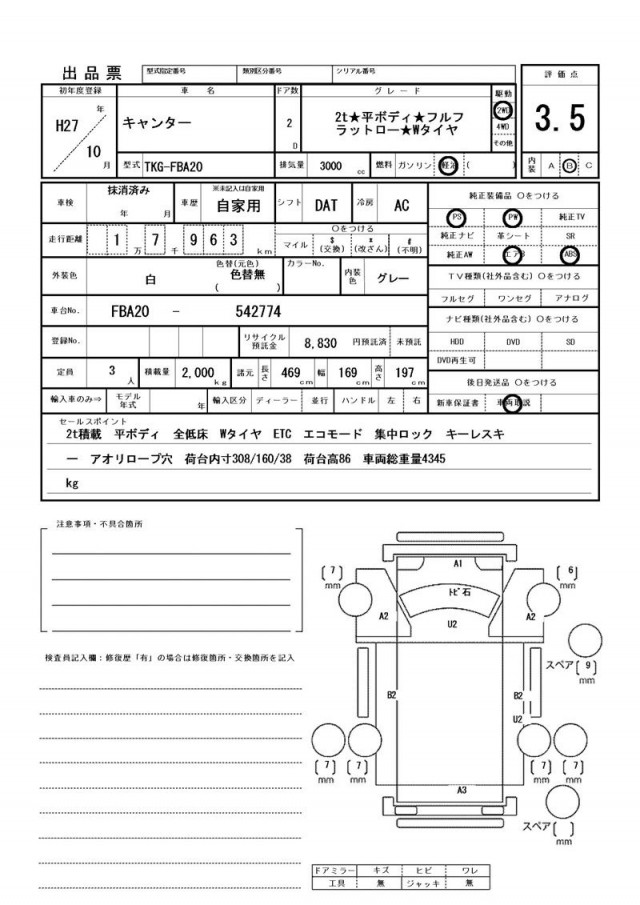 出品票 型式指定番号 類別区分番号 シリアル番号
初年度登録 車名 ドア数 グレード 駆動 評価点
H27 年 キャンター 2 D 2t★平ボディ★フルフ 2WD 3.5
ラットロー★Wタイヤ 4WD
その他
10 月 型式 TKG-FBA20 排気量 3000 cc 燃料 ガソリン 軽油 ( ) 内装 A B C
車検 抹消済み 年 月 車歴 ※未記入は自家用 自家用 シフト DAT 冷房 AC 純正装備品 ○をつける
PS PW 純正TV
走行距離 1 万 7 千 9 6 3 km ○をつける
マイル $(交換) *(改ざん) #(不明) 純正ナビ 革シート SR
純正AW エアB ABS
外装色 白 色替(元色) 色替無 ( ) カラーNo. 内装色 グレー
TV種類(社外品含む) ○をつける
フルセグ ワンセグ アナログ
車台No. FBA20 - 542774
ナビ種類(社外品含む) ○をつける
登録No. リサイクル預託金 8,830 円預託済 未預託 HDD DVD SD
DVD再生可
定員 3 人 積載量 2,000 kg 諸元 長さ 469 cm 幅 169 cm 高さ 197 cm
後日発送品 ○をつける
輸入車のみ⇒ モデル年式 年 輸入区分 ディーラー 並行 ハンドル 左 右 新車保証書 車両取説
セールスポイント
2t積載 平ボディ 全低床 Wタイヤ ETC エコモード 集中ロック キーレスキ
ー アオリロープ穴 荷台内寸308/160/38 荷台高86 車両総重量4345
kg
注意事項・不具合箇所
検査員記入欄：修復歴「有」の場合は修復箇所・交換箇所を記入
A1
(7) mm (6) mm
トビ石
A2 U2 A2
スペア (9) mm
B2 B2
U2
(7) mm (7) mm (7) mm (7) mm
A3
スペア ( ) mm
ドアミラー キズ ヒビ ワレ
工具 無 ジャッキ 無